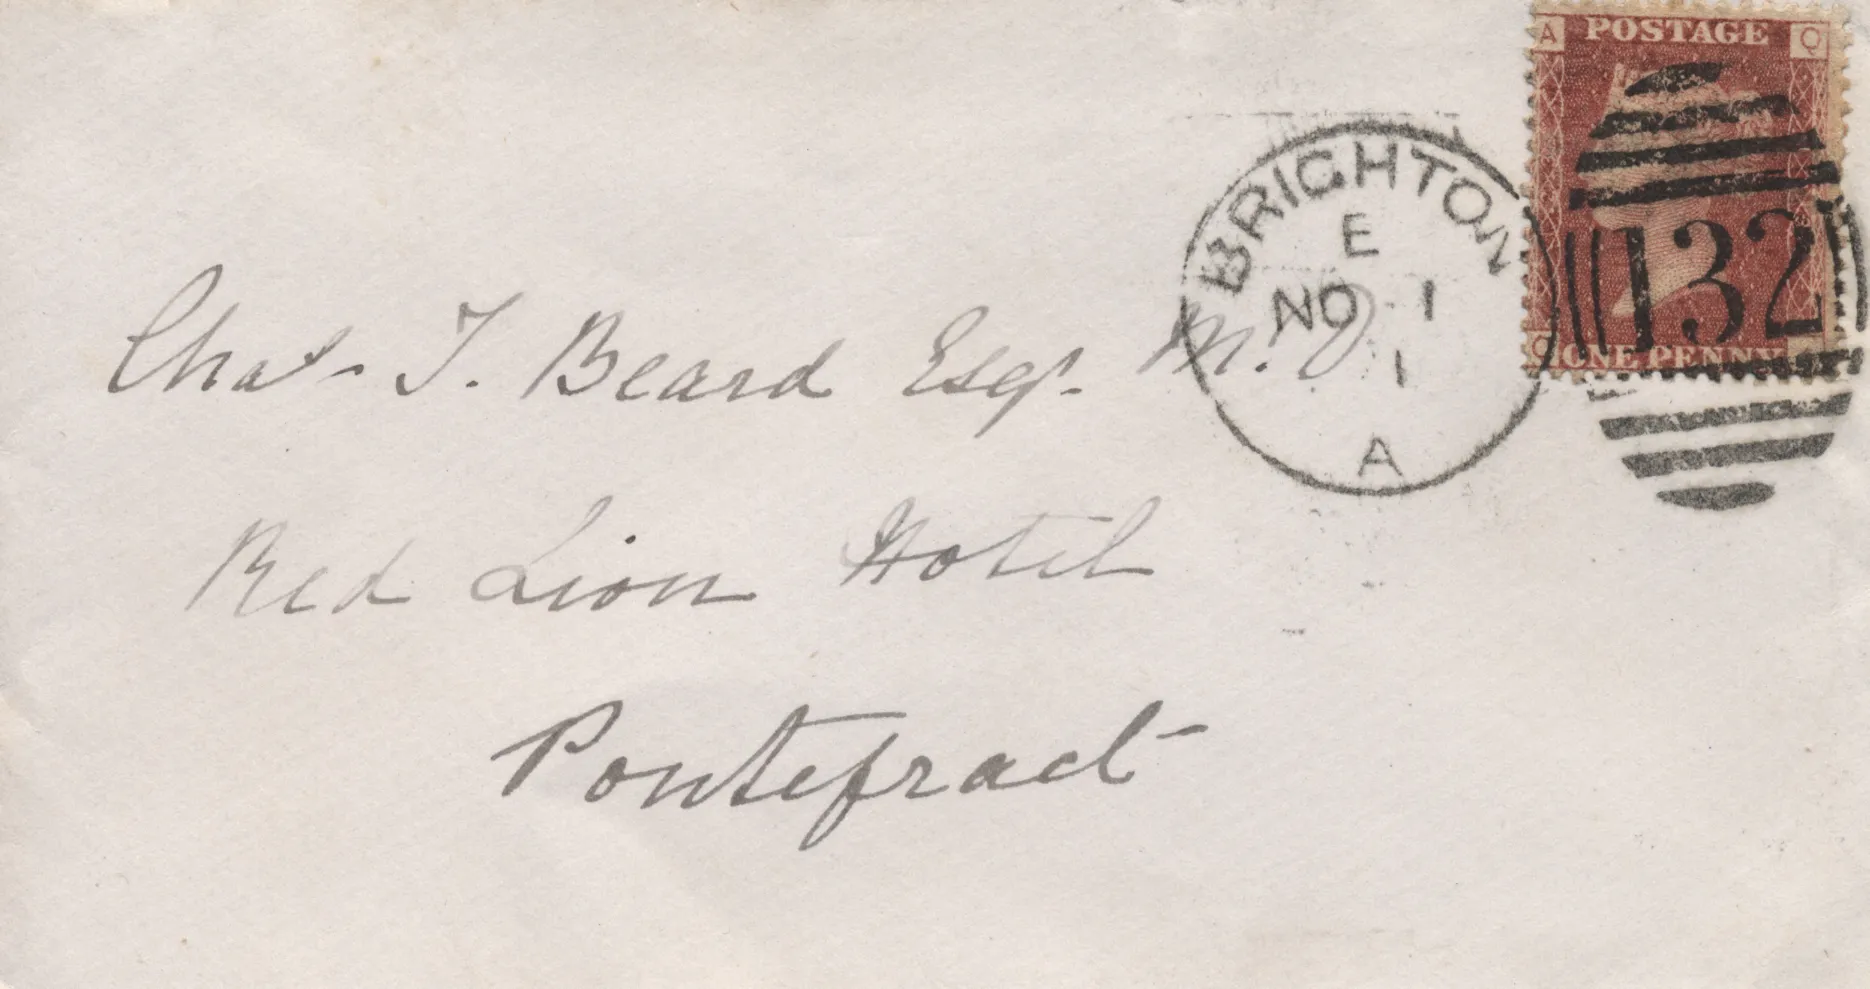 A POSTAGE Q
BRIGHTON
E
NO 1
1
A
132
Q ONE PENNY
Chas. T. Beard Esqr. M. D
Red Lion Hotel
Pontefract